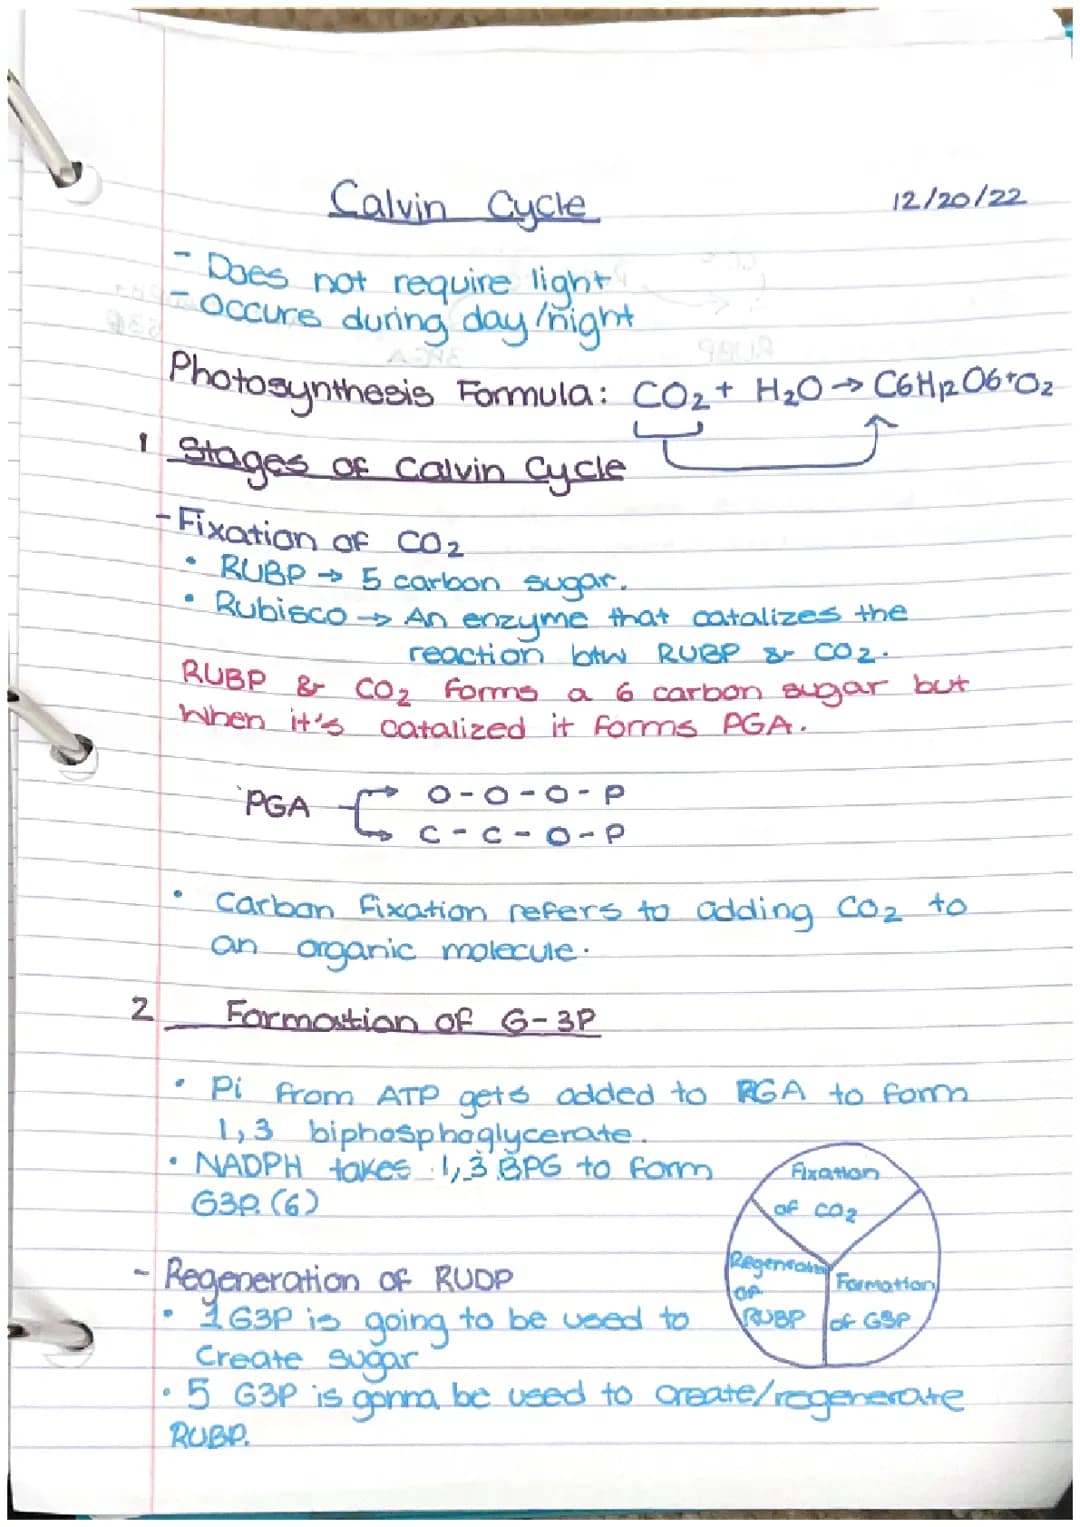 Calvin Cycle 12/20/22
- Does not require light
- Occurs during day/night
Photosynthesis Formula: CO2 + H2O → C6H12O6+O2
1 Stages of Calvin Cycle
- Fixation of CO2
• RUBP → 5 carbon sugar.
• Rubisco → An enzyme that catalizes the
reaction btw RUBP & CO2.
RUBP & CO2 forms a 6 carbon sugar but
when it's catalized it forms PGA.
PGA → O-O-O-P
→ C-C-O-P
• Carbon fixation refers to adding CO2 to
an organic molecule.
2 Formation of G-3P
• Pi from ATP gets added to PGA to form
1,3 biphosphoglycerate.
• NADPH takes 1,3 BPG to form
G3P. (6)
Fixation
of CO2
Regeneration
of
RUBP
Formation
of G3P
- Regeneration of RUDP
• 1 G3P is going to be used to
Create sugar
• 5 G3P is gonna be used to create/regenerate
RUBP.